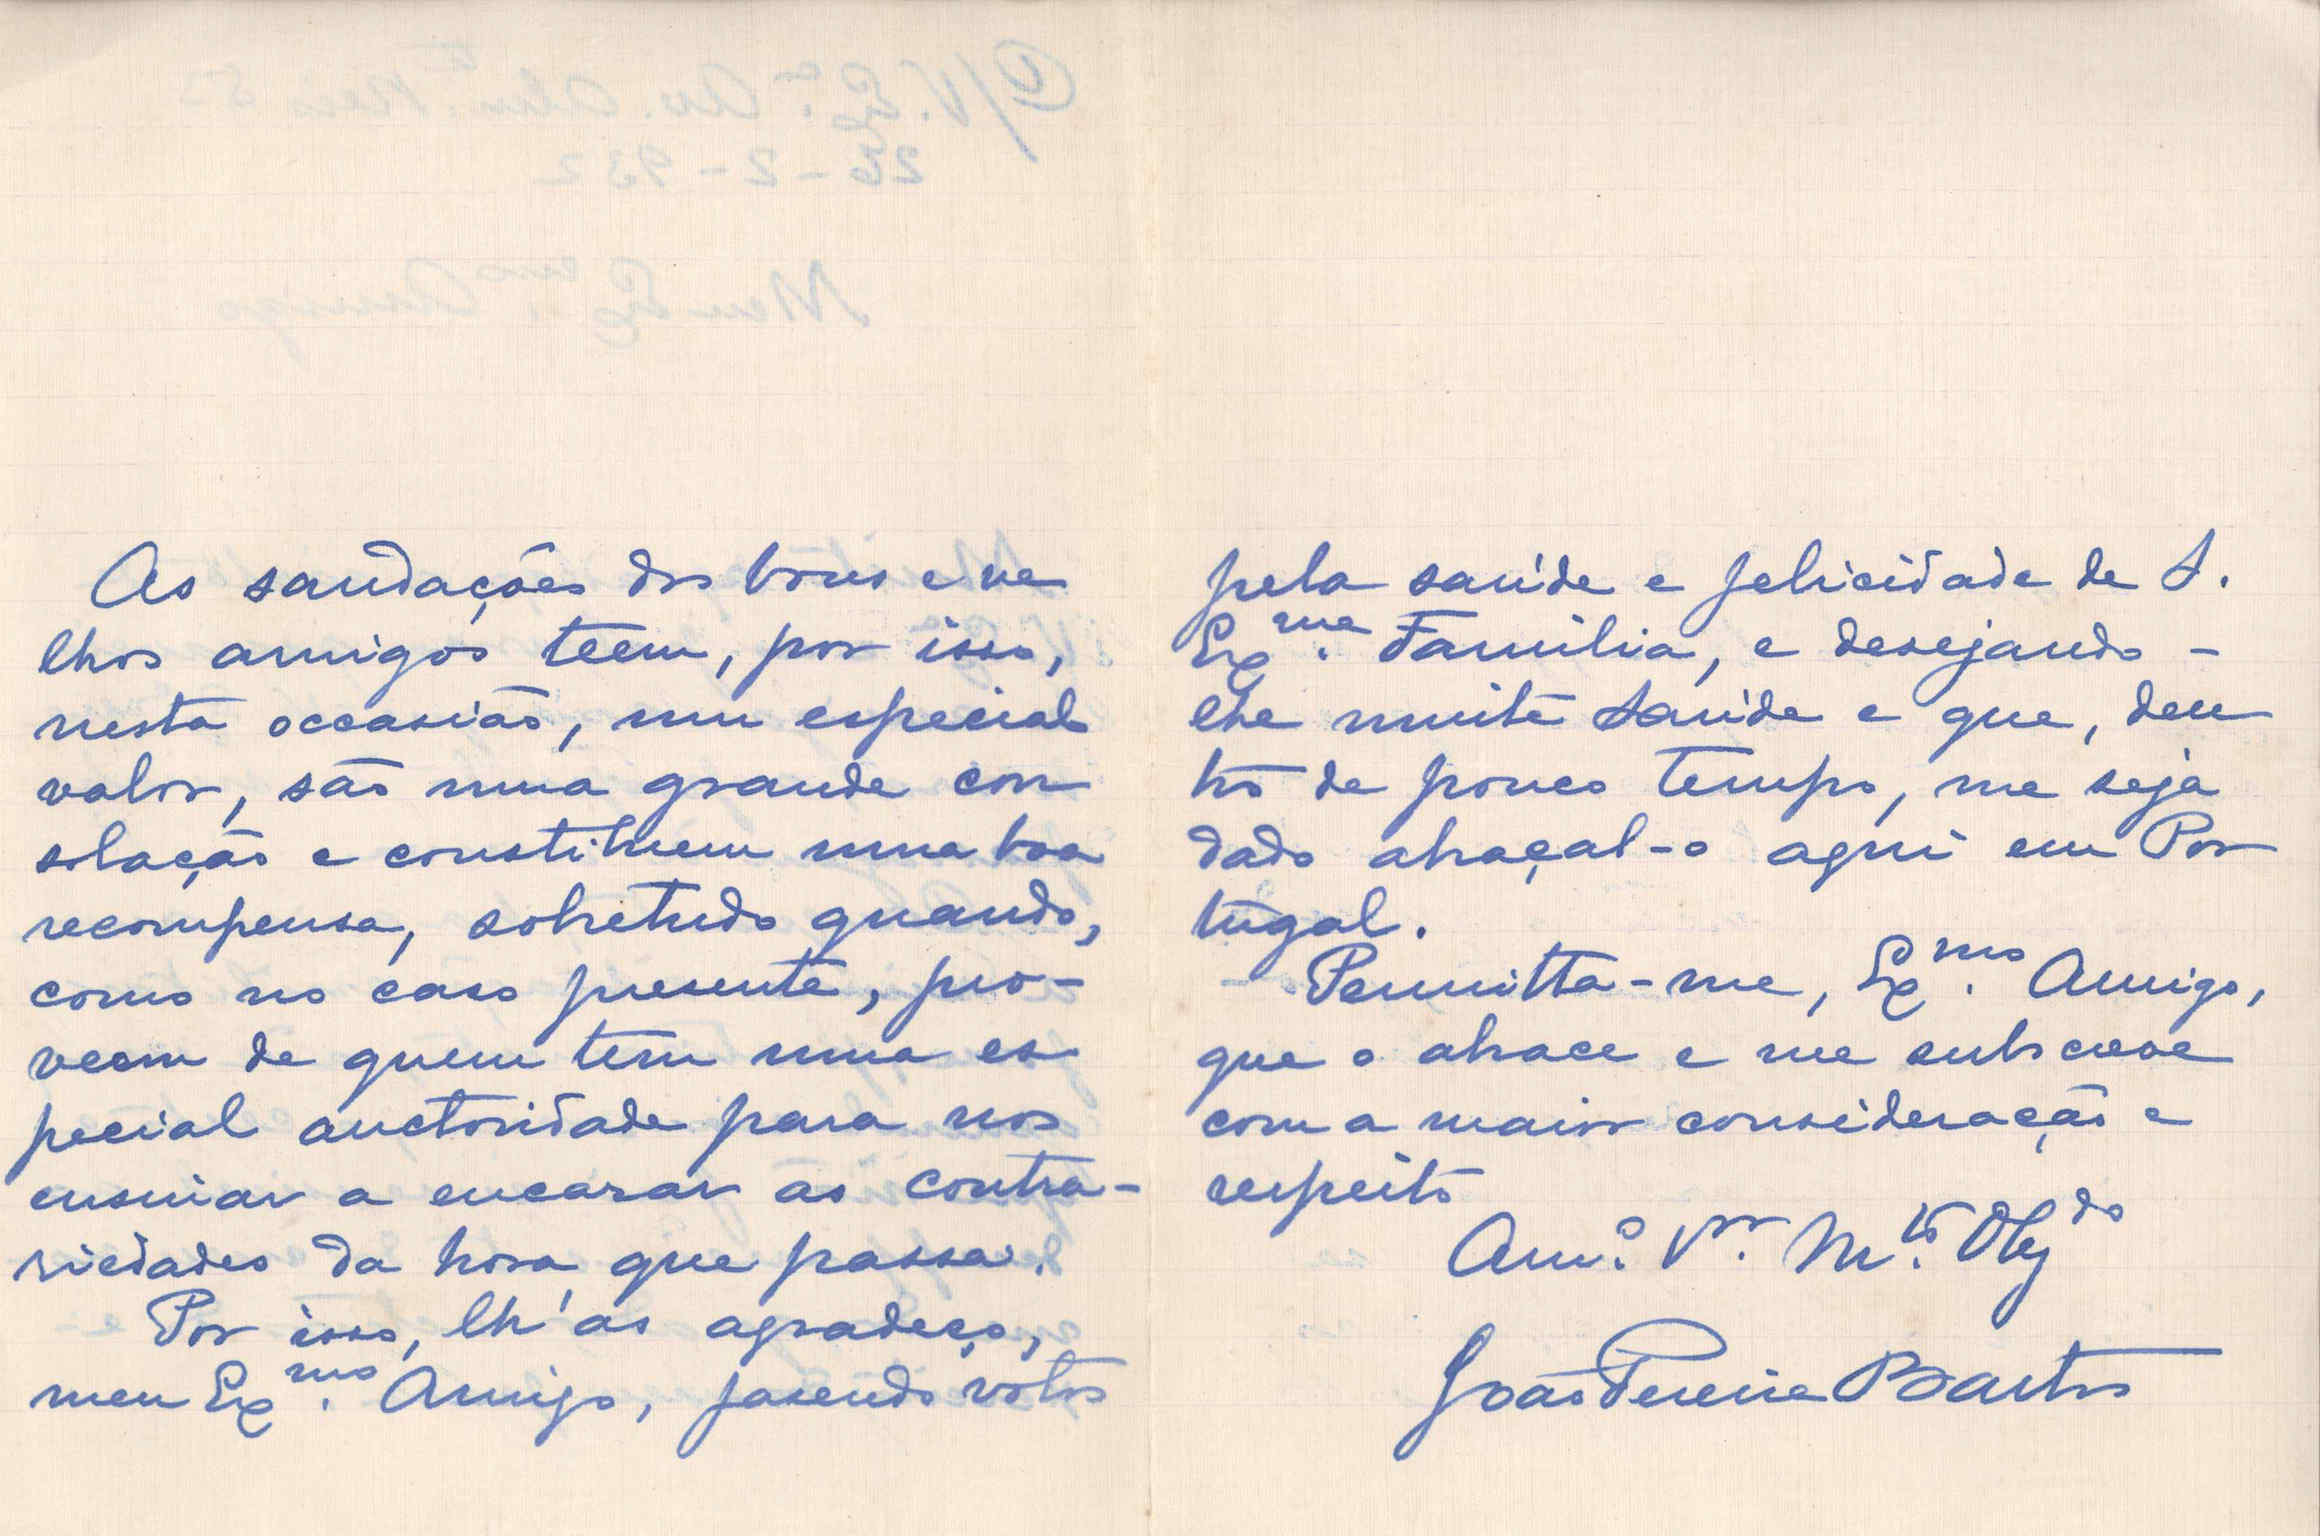 As saudações dos bons e ve
lhos amigos teem, por isso,
nesta occasião, um especial
valor, são uma grande con
solação e constituem uma boa
recompensa, sobretudo quando,
como no caso presente, pro-
veem de quem tem uma es
pecial auctoridade para nos
ensinar a encarar as contra-
riedades da hora que passa.
Por isso, lh'as agradeço,
meu Ex.mo Amigo, fasendo votos
pela saúde e felicidade de S.
Ex.ma Familia, e desejando-
lhe muita saúde e que, den
tro de pouco tempo, me seja
dado abraçal-o aqui em Por
tugal.
Permitta-me, Ex.mo Amigo,
que o abrace e me subscreve
com a maior consideração e
respeito
Am.º V.or M.to Obgdo
João Pereira Bastos